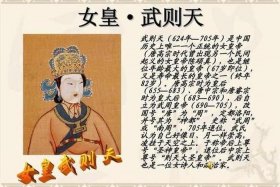 女皇·武则天
武则天（624年—705年）是中国
历史上唯一一个正统的女皇帝
（唐高宗时代曾出现另一个民间起
义的女皇帝陈硕真），也是继
位年龄最大的皇帝（67岁即位），
又是寿命最长的皇帝之一（终年
82岁）。唐高宗时为皇后
（655—683）、唐中宗和唐睿宗
时为皇太后（683—690），后自
立为武周皇帝（690—705），改
国号“唐”为“周”，定都洛阳，
并号其为“神都”。史称“武周”
或“南周”，705年退位。武氏
认为自己好像日、月一样崇高，
凌挂于天空之上。于称帝后上尊
号“圣神皇帝”，退位后中宗上
尊号“则天大圣皇帝”。武则天
也是一位女诗人和政治家。
女皇武则天